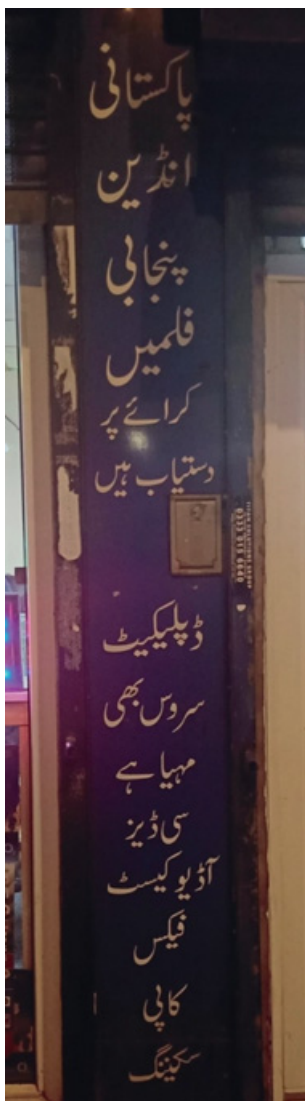 پاکستانی
انڈین
پنجابی
فلمیں
کرائے پر
دستیاب ہیں
ڈپلیکیٹ
سروس بھی
مہیا ہے
سی ڈیز
آڈیو کیسٹ
فیکس
کاپی
سکینگ